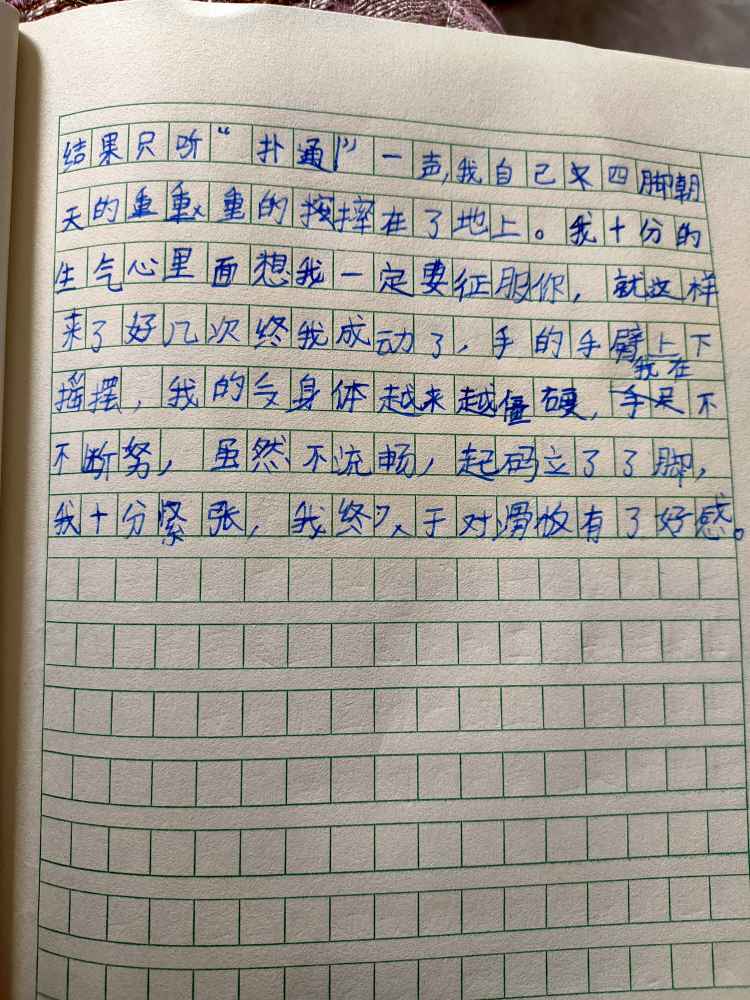 结果只听“扑通”一声,我自己来四脚朝
天的重重重的按摔在了地上。我十分的
生气心里面想我一定要征服你,就这样
来了好几次终我成动了,手的手臂上下
摇摆,我的身体越来越僵硬,我在不
不断努,虽然不流畅,起码立了了脚,
我十分紧张,我终于对滑板有了好感。